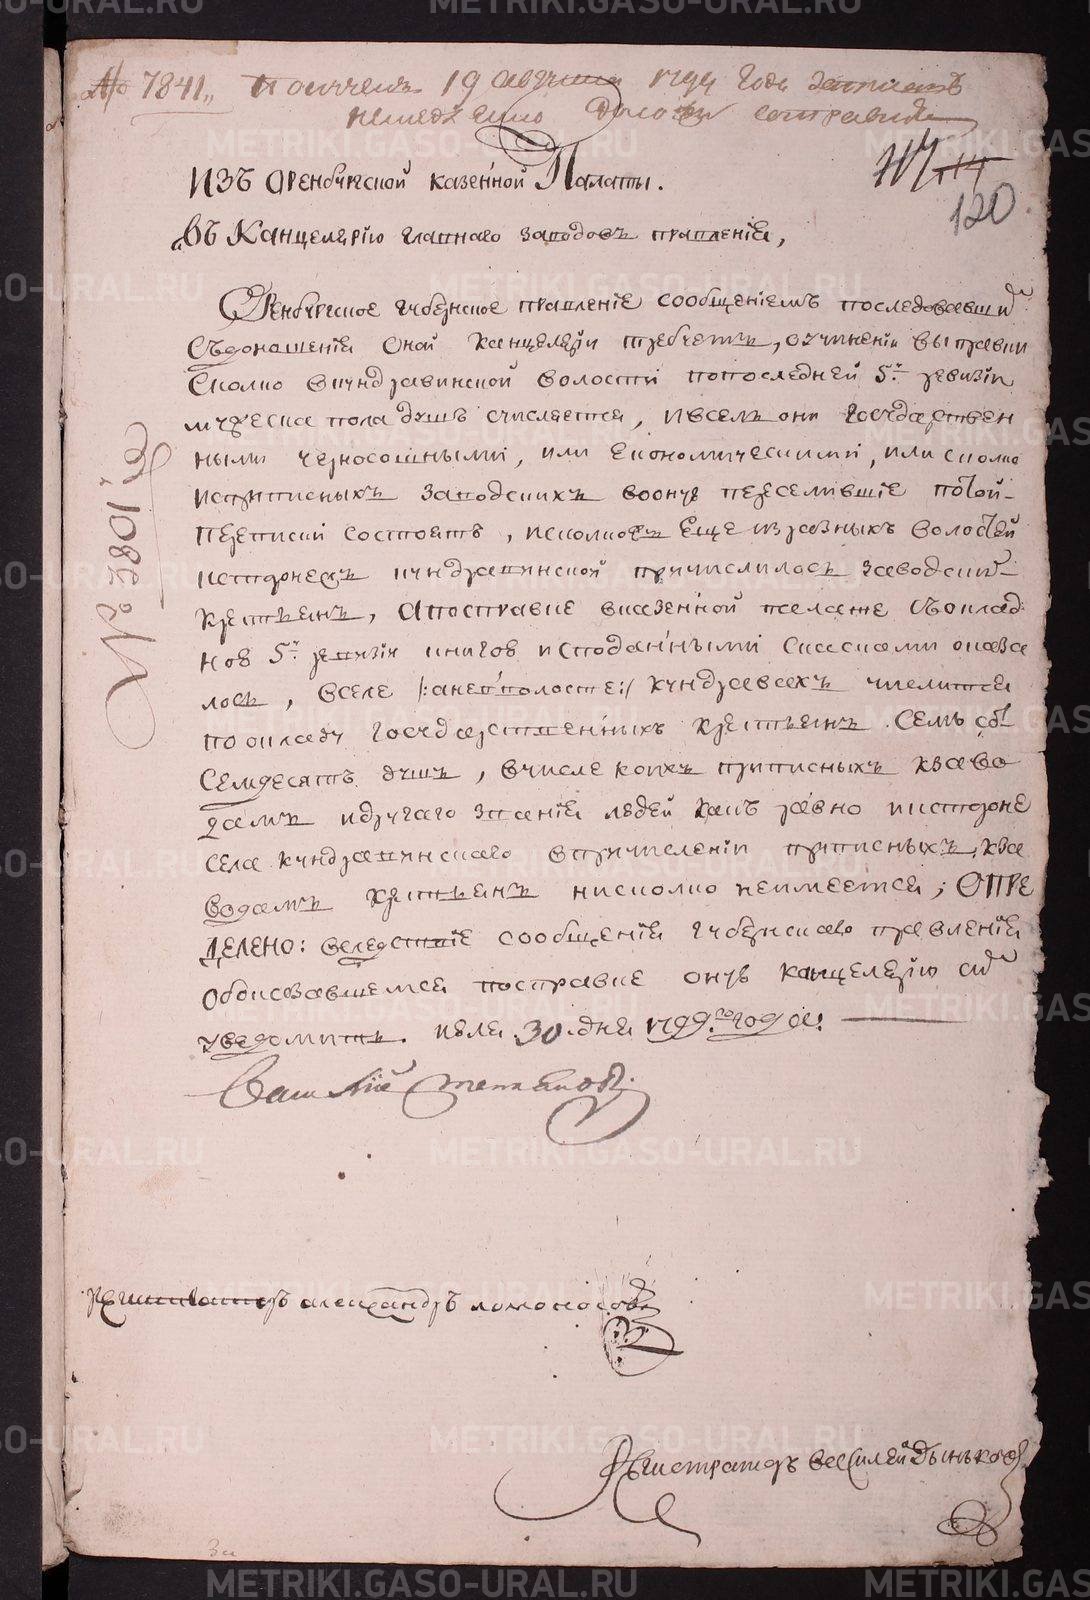 № 7841,, Полученъ 19 августа 1799 года записавъ
немедленно доложить
114
120
Изъ Оренбургской казенной Палаты.
Въ Канцелярию главнаго заводовъ правления,
Оренбургское губернское правление сообщениемъ последовавши
съ доношения оной канцелярии требуетъ, о учинении выправки
сколко в кундравинской волости по последней 5й ревизии
мужеска пола душъ счисляется, и все лъ они государствен
ными черносошными, или економическими, или сколко
и приписныхъ заводскихъ во оную переселившие по той
переписи состоятъ, и сколко еще из разныхъ волостей
и сторонъ кундравинской причислилось заводских
крестьянъ, а по справке в казенной палате с оклад
нов 5й ревизии книгов и с поданными сказками оказа
лось, в селе /:а не в волосте:/ кундравахъ числится
по окладу государственныхъ крестьянъ семь сот
семдесятъ душъ, в числе коихъ приписныхъ к заво
дамъ и другаго звания людей какъ равно и в стороне
села кундравинскаго в причислении приписныхъ к за
водамъ крестьянъ нисколко не имеется; ОПРЕ
ДЕЛЕНО: вследствие сообщения губернскаго правления
об оказавшемся по справке оную канцелярию сим
уведомить. июля 30 дня 1799го года:
Василий Степановъ.
№ 3801й
александръ ломоносовъ
Регистраторъ Василей Дьяконов